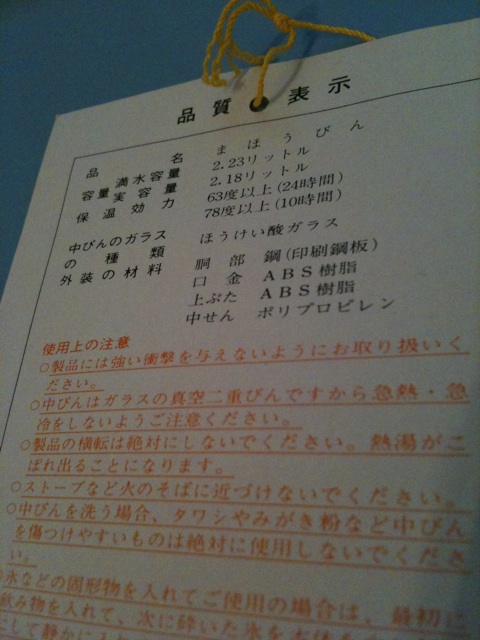 品質表示
品名 まほうびん
満水容量 2.23リットル
容量実容量 2.18リットル
保温効力 63度以上(24時間)
78度以上(10時間)
中びんのガラス
の種類 ほうけい酸ガラス
外装の材料 胴部 鋼(印刷鋼板)
口金 ABS樹脂
上ぶた ABS樹脂
中せん ポリプロピレン
使用上の注意
○製品には強い衝撃を与えないようにお取り扱いく
ださい。
○中びんはガラスの真空二重びんですから急熱・急
冷をしないようご注意ください。
○製品の横転は絶対にしないでください。熱湯がこ
ぼれ出ることになります。
○ストーブなど火のそばに近づけないでください。
○中びんを洗う場合、タワシやみがき粉など中びん
を傷つけやすいものは絶対に使用しないでくださ
い。
○氷などの固形物を入れてご使用の場合は、最初に
飲み物を入れて、次に砕いた氷を
して静かに